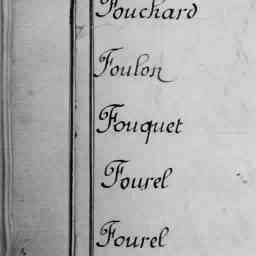 Fouchard
Foulon
Fouquet
Fourel
Fourel